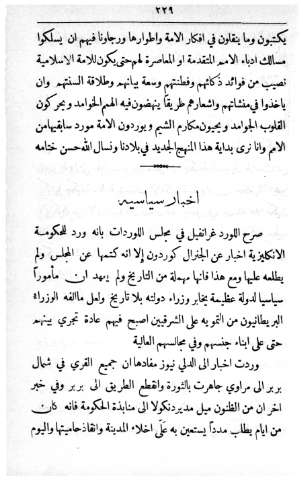 ٢٢٩
يكتبون وما ينقلون في افكار الامة واطوارها ورجاونا فيهم ان يسلكوا
مسالك ادباء الامم المتقدمة او المعاصرة لهم حتى يكون للامة الاسلامية
نصيب من فوائد ذكائهم وفطنتهم وسعة بيانهم وطلاقة السنتهم وان
ياخذوا في منشئاتهم واشعارهم طريقا ينهضون فيه الهمم الخوامد ويحركون
القلوب الجوامد ويحيون مكارم الشيم ويوردون الامة مورد سابقيها من
الامم وانا نرى بداية هذا المنهج الجديد في بلادنا ونسال الله حسن ختامه
اخبار سياسيه
صرح اللورد غرانفيل في مجلس اللوردات بانه ورد للحكومة
الانكليزية اخبار عن الجنرال كوردون الا انه كتمها عن المجلس ولم
يطلعه عليها ومع هذا فانها مهملة من التاريخ ولم يعهد ان مأموراً
سياسيا لدولة عظيمة يخابر وزراء دولته بلا تاريخ ولعل ما الفه الوزراء
البريطانيون من التمويه على الشرقيين اصبح فيهم عادة تجري بينهم
حتى على ابناء جنسهم وفي مجالسهم العالية
وردت اخبار الى الدلي نيوز مفادها ان جميع القرى في شمال
بربر الى مراوي جاهرت بالثورة وانقطع الطريق الى بربر وفي خبر
اخر ان من الظنون ميل مدير دنكولا الى منابذة الحكومة فانه كان
من ايام يطلب مدداً يستعين به على اخلاء المدينة وانقاذ حاميتها واليوم